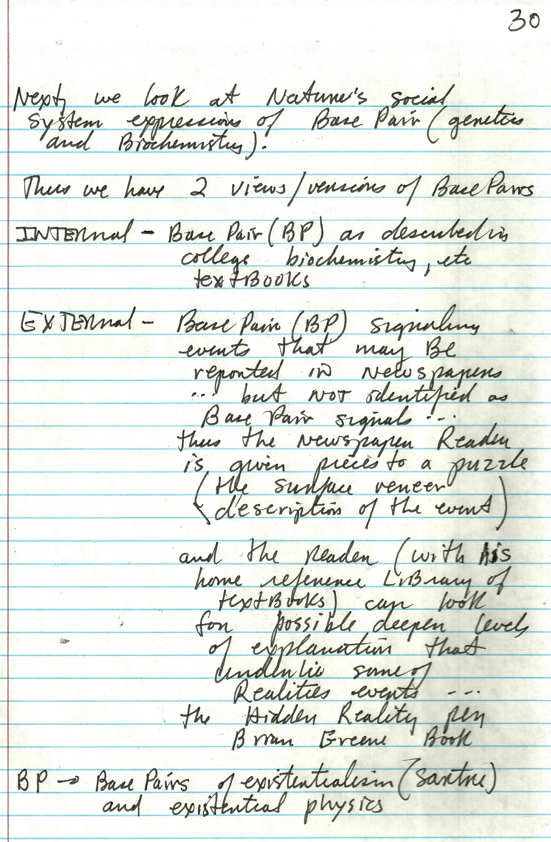 30
Next, we look at Nature's social
System expressions of Base Pair (genetics
and Biochemistry).
Thus we have 2 views/versions of Base Pairs
INTERNAL - Base Pair (BP) as described in
college biochemistry, etc
textBooks
EXTERNAL - Base Pair (BP) signaling
events that may Be
reported in Newspapers
... but NOT identified as
Base Pair signals ...
thus the Newspaper Reader
is given pieces to a puzzle
(the surface veneer
description of the event)
and the reader (with his
home reference LiBrary of
textBooks) can look
for possible deeper levels
of explanation that
underlie some of
Realities events ---
the Hidden Reality per
Brian Greene Book
BP → Base Pairs of existentialism (Sartre)
and existential physics